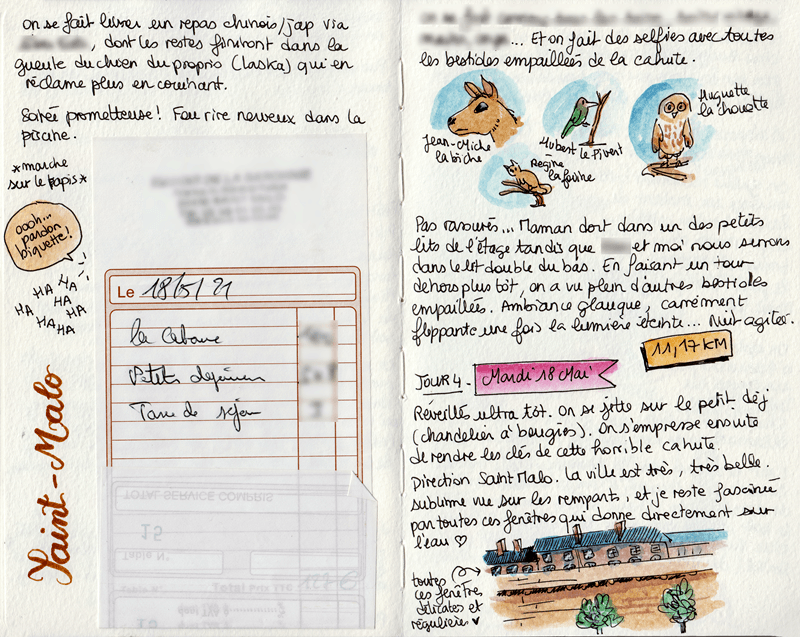 on se fait livrer un repas chinois/jap via
, dont les restes finiront dans la
gueule du chien du proprio (Laska) qui en
réclame plus en couinant.
Soirée prometteuse! Fou rire nerveux dans la
piscine.
*marche
sur le tapis*
oooh...
pardon
biquette!
HA HA
HA HA
HA HA
HA
Saint-Malo
Le 18/5/21
la Cabane
Petits déjeuners
Taxe de séjour
TOTAL SERVICE COMPRIS
15
Table N°
... Et on fait des selfies avec toutes
les bestioles empaillées de la cahute.
Jean-Miche
la biche
Hubert le Pivert
Huguette
la chouette
Régine
la fouine
Pas rassurés... Maman dort dans un des petits
lits de l'étage tandis que et moi nous serrons
dans le lit double du bas. En faisant un tour
dehors plus tôt, on a vu plein d'autres bestioles
empaillées. Ambiance glauque, carrément
flippante une fois la lumière éteinte... Nuit agitée.
11,17 KM
JOUR 4 - Mardi 18 Mai
Réveillés ultra tôt. On se jette sur le petit déj
(chandelier à bougies). On s'empresse ensuite
de rendre les clés de cette horrible cahute.
Direction Saint Malo. La ville est très, très belle.
sublime vue sur les remparts, et je reste fascinée
par toutes ces fenêtres qui donne directement sur
l'eau ♡
toutes
ces fenêtres
délicates et
régulières ♥